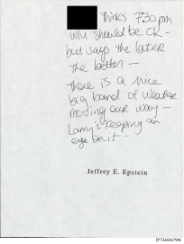 thinks 7:30 pm
will should be OK -
but says the later
the better -
there is a nice
big band of weather
moving our way -
Larry's keeping an
eye on it -
Jeffrey E. Epstein